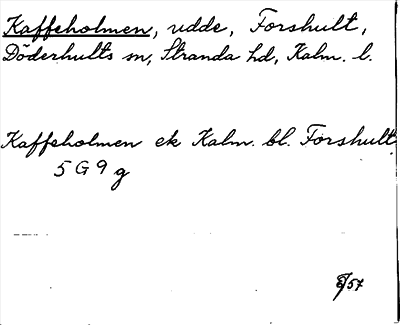 Kaffeholmen, udde, Forshult,
Döderhults sn, Stranda hd, Kalm. l.
Kaffeholmen ek Kalm. bl. Forshult
5 G 9 g
57